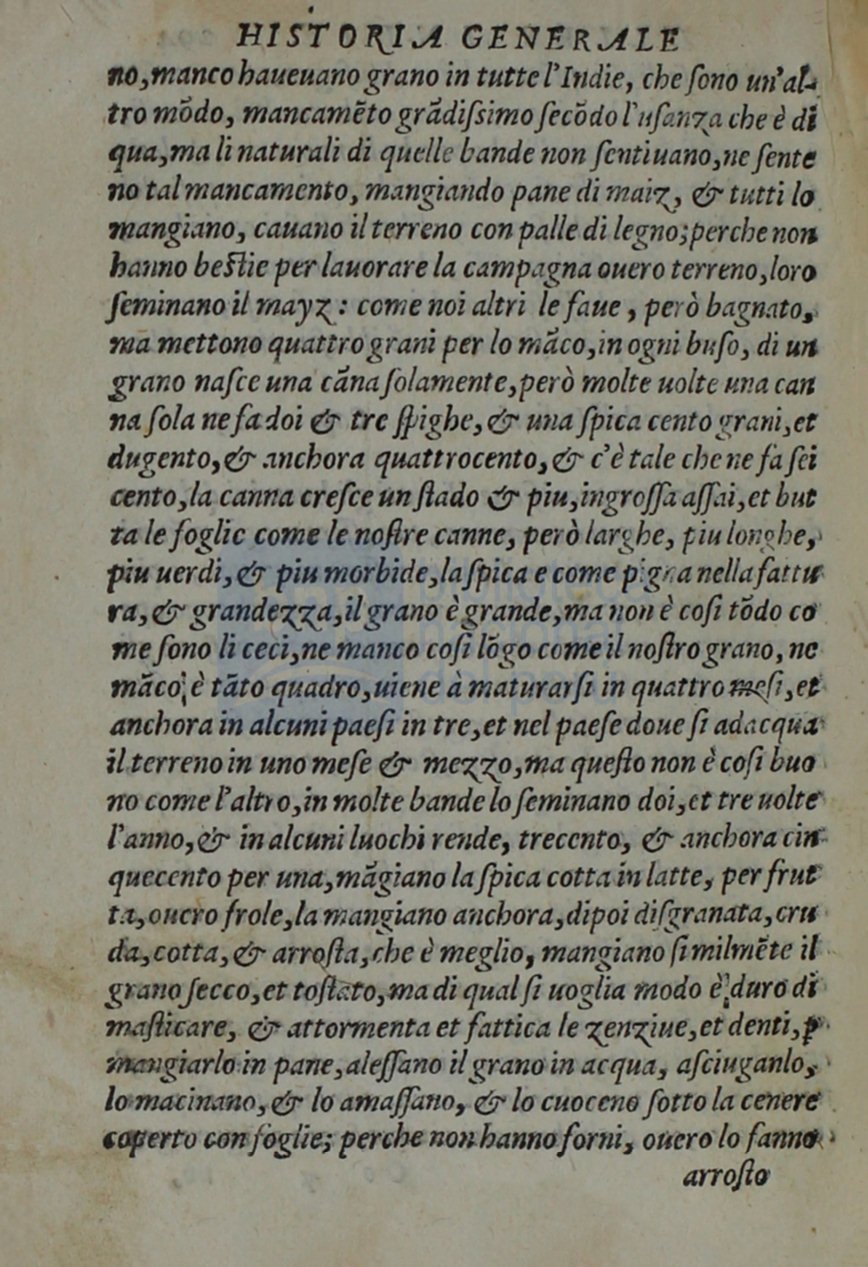 HISTORIA GENERALE
no, manco haueuano grano in tutte l'Indie, che ſono un'al-
tro mõdo, mancamẽto grãdiſsimo ſecõdo l'uſanza che è di
qua, ma li naturali di quelle bande non ſentiuano, ne ſente
no tal mancamento, mangiando pane di maiz, & tutti lo
mangiano, cauano il terreno con palle di legno; perche non
hanno beſtie per lauorare la campagna ouero terreno, loro
ſeminano il mayz: come noi altri le faue, però bagnato,
ma mettono quattro grani per lo mãco, in ogni buſo, di un
grano naſce una cãna ſolamente, però molte uolte una can
na ſola ne fa doi & tre ſpighe, & una ſpica cento grani, et
dugento, & anchora quattrocento, & c'è tale che ne fa ſei
cento, la canna creſce un ſtado & piu, ingroſſa aſſai, et but
ta le foglie come le noſtre canne, però larghe, piu longhe,
piu uerdi, & piu morbide, la ſpica e come pigna nella fattu
ra, & grandezza, il grano è grande, ma non è coſi tõdo co
me ſono li ceci, ne manco coſi lõgo come il noſtro grano, ne
mãco è tãto quadro, uiene à maturarſi in quattro meſi, et
anchora in alcuni paeſi in tre, et nel paeſe doue ſi adacqua
il terreno in uno meſe & mezzo, ma queſto non è coſi buo
no come l'altro, in molte bande lo ſeminano doi, et tre uolte
l'anno, & in alcuni luochi rende, trecento, & anchora cin-
quecento per una, mãgiano la ſpica cotta in latte, per frut
ta, ouero frole, la mangiano anchora, dipoi diſgranata, cru
da, cotta, & arroſta, che è meglio, mangiano ſimilmẽte il
grano ſecco, et toſtato, ma di qual ſi uoglia modo è duro di
maſticare, & attormenta et fattica le zenziue, et denti, ꝑ
mangiarlo in pane, aleſſano il grano in acqua, aſciuganlo,
lo macinano, & lo amaſſano, & lo cuoceno ſotto la cenere
coperto con foglie; perche non hanno forni, ouero lo fanno
arroſto